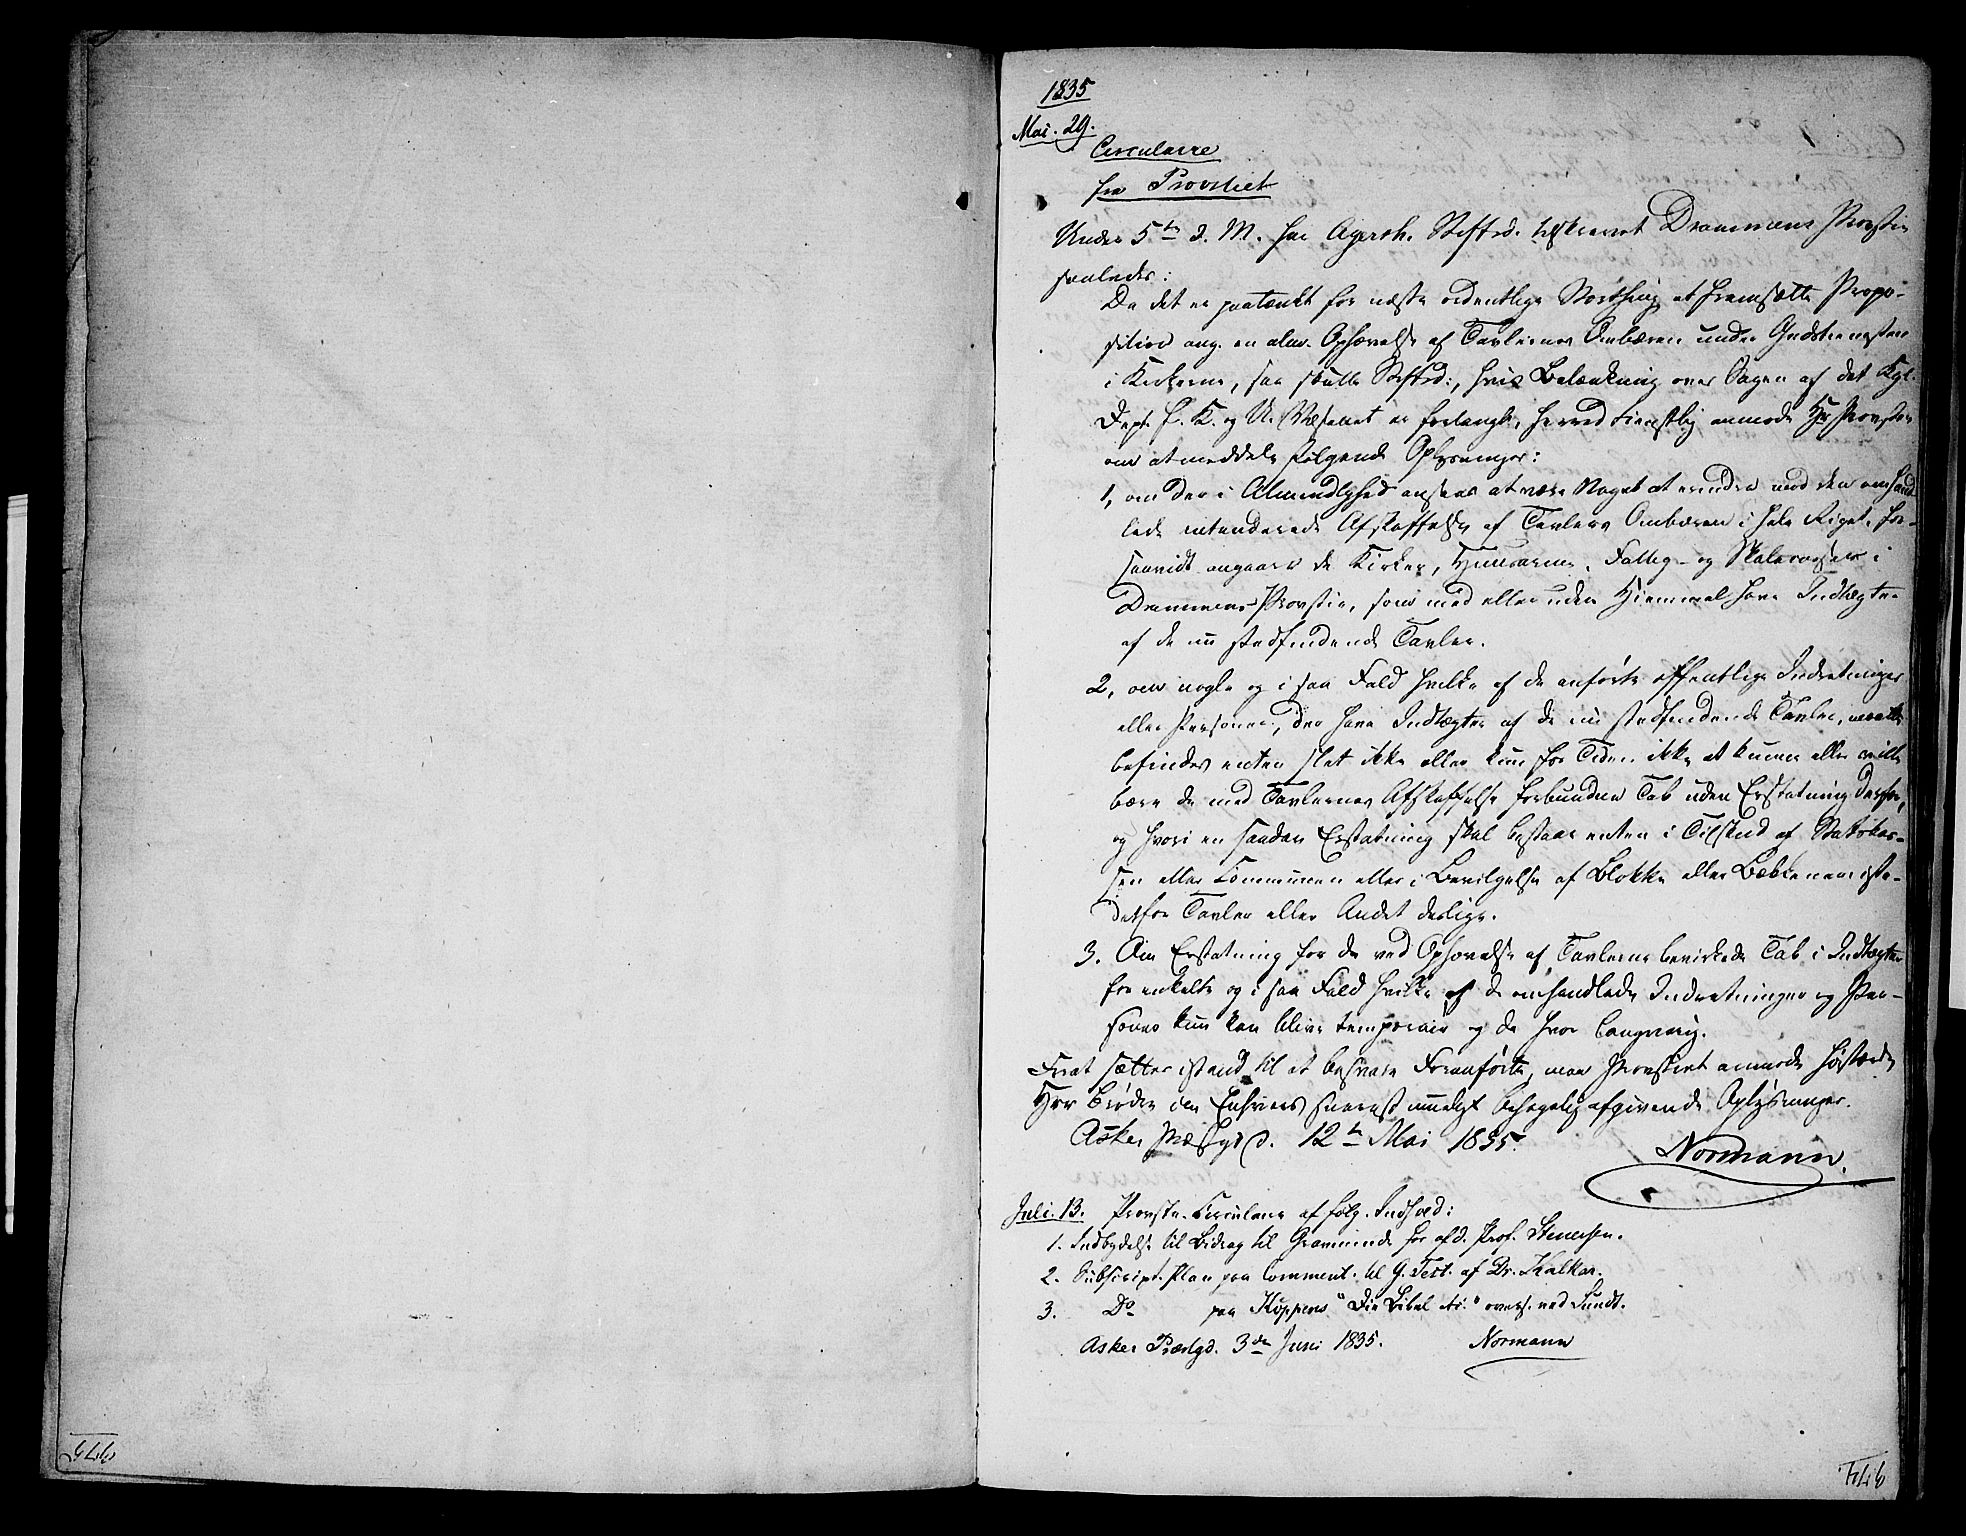 1835
Mai. 29.
Circulaire
fra Provstiet
Under 5te d. M. har Agersh. Stiftsd. tilskrevet Drammens Provstie
saaledes:
Da det er paatænkt for næste ordentlige Storthing at fremsætte Propo-
sition ang. en alm. Ophævelse af Tavlernes Ombæren under Gudstienesten
i Kirkerne, saa skulle Stiftsd:, hvis Betænkning over Sagen af det Kgl.
Dept. f. K. og U. Væsenet er forlangt, herved tienstlig anmode Hr Provsten
om at meddele følgende Oplysninger:
1, om der i Almindelighed ansees at være Noget at erindre mod den omhand-
lede intenderede Afskaffelse af Tavlers Ombæren i hele Riget, for-
saavidt angaaer de Kirker, Fattig- og Skolevæsener i
Drammens Provstie, som med eller uden Hiemmel have Indtægter
af de nu stedfindende Tavler.
2, om nogle og i saa Fald hvilke af de anførte offentlige Indretninger
eller Personer, der have Indtægter af de nu stedfindende Tavler, maatte
befindes enten slet ikke eller kun for Tiden ikke at kunne eller ville
bære de med Tavlernes Afskaffelse forbundne Tab uden Erstatning derfor,
og hvori en saadan Erstatning skal bestaae enten i Tilskud af Statskas-
sen eller Communen eller i Bevilgelse af Blokke eller Bækkener iste-
detfor Tavler eller Andet deslige.
3. Om Erstatning for de ved Ophævelse af Tavlerne bevirkede Tab i Indtægter
for enkelte og i saa Fald hvilke af de omhandlede Indretninger og Per-
soner kun kan blive temporair og da hvor langvarig.
For at sættes istand til at besvare Foranførte, maa Provstiet anmode Høistærede
Hrr Brødre om Enhvers snarest mueligt behagelig afgivende Oplysninger.
Asker Præstgd d. 12te Mai 1835.
Normann.
Juli. 13. Provste-Circulaire af følg. Indhold:
1. Indbydelse til Bidrag til Gravminde for afd. Prof. Stenersen.
2. Subscript. Plan paa Comment. til G. Test. af Dr. Kalkar.
3. Do paa Køppens "Die Bibel etc." overs. ved Sundt.
Asker Præstgd. 3die Juni 1835. Normann